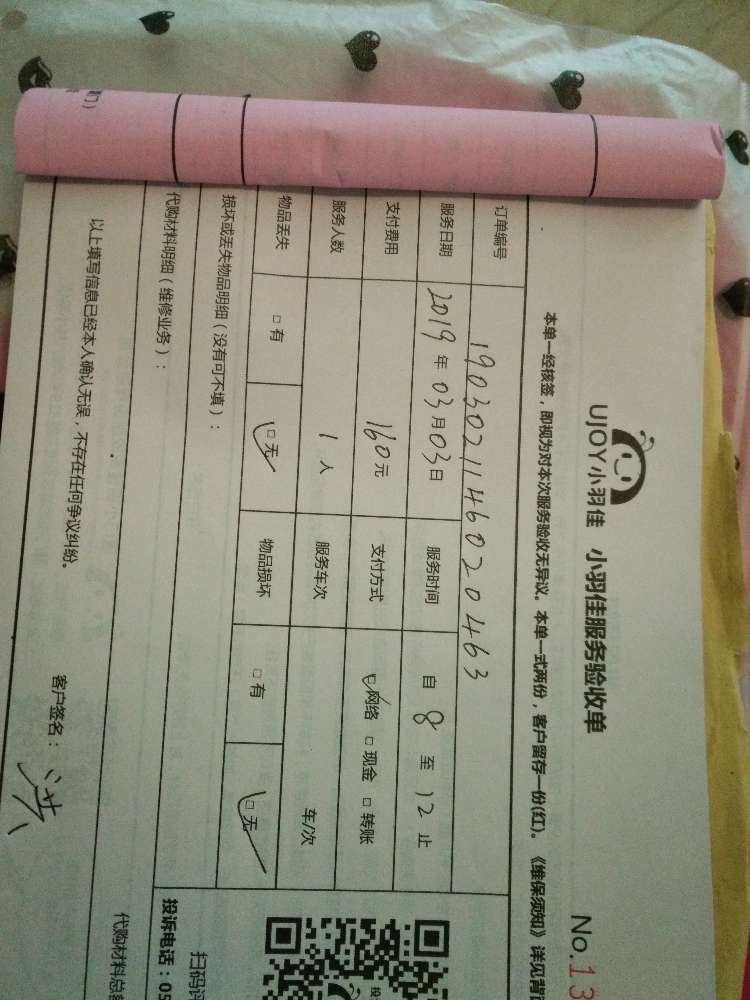 UJOY小羽佳 小羽佳服务验收单 No.13
本单一经核签，即视为对本次服务验收无异议。本单一式两份，客户留存一份(红)。《维保须知》详见背
订单编号 1903021146020463
服务日期 2019年03月03日 服务时间 自8至12止
支付费用 160元 支付方式 □网络 □现金 □转账
服务人数 1人 服务车次 车/次
物品丢失 □有 □无 物品损坏 □有 □无
损坏或丢失物品明细（没有可不填）：
代购材料明细（维修业务）：
代购材料总
以上填写信息已经本人确认无误，不存在任何争议纠纷。
客户签名：洪
扫码评
投诉电话：05